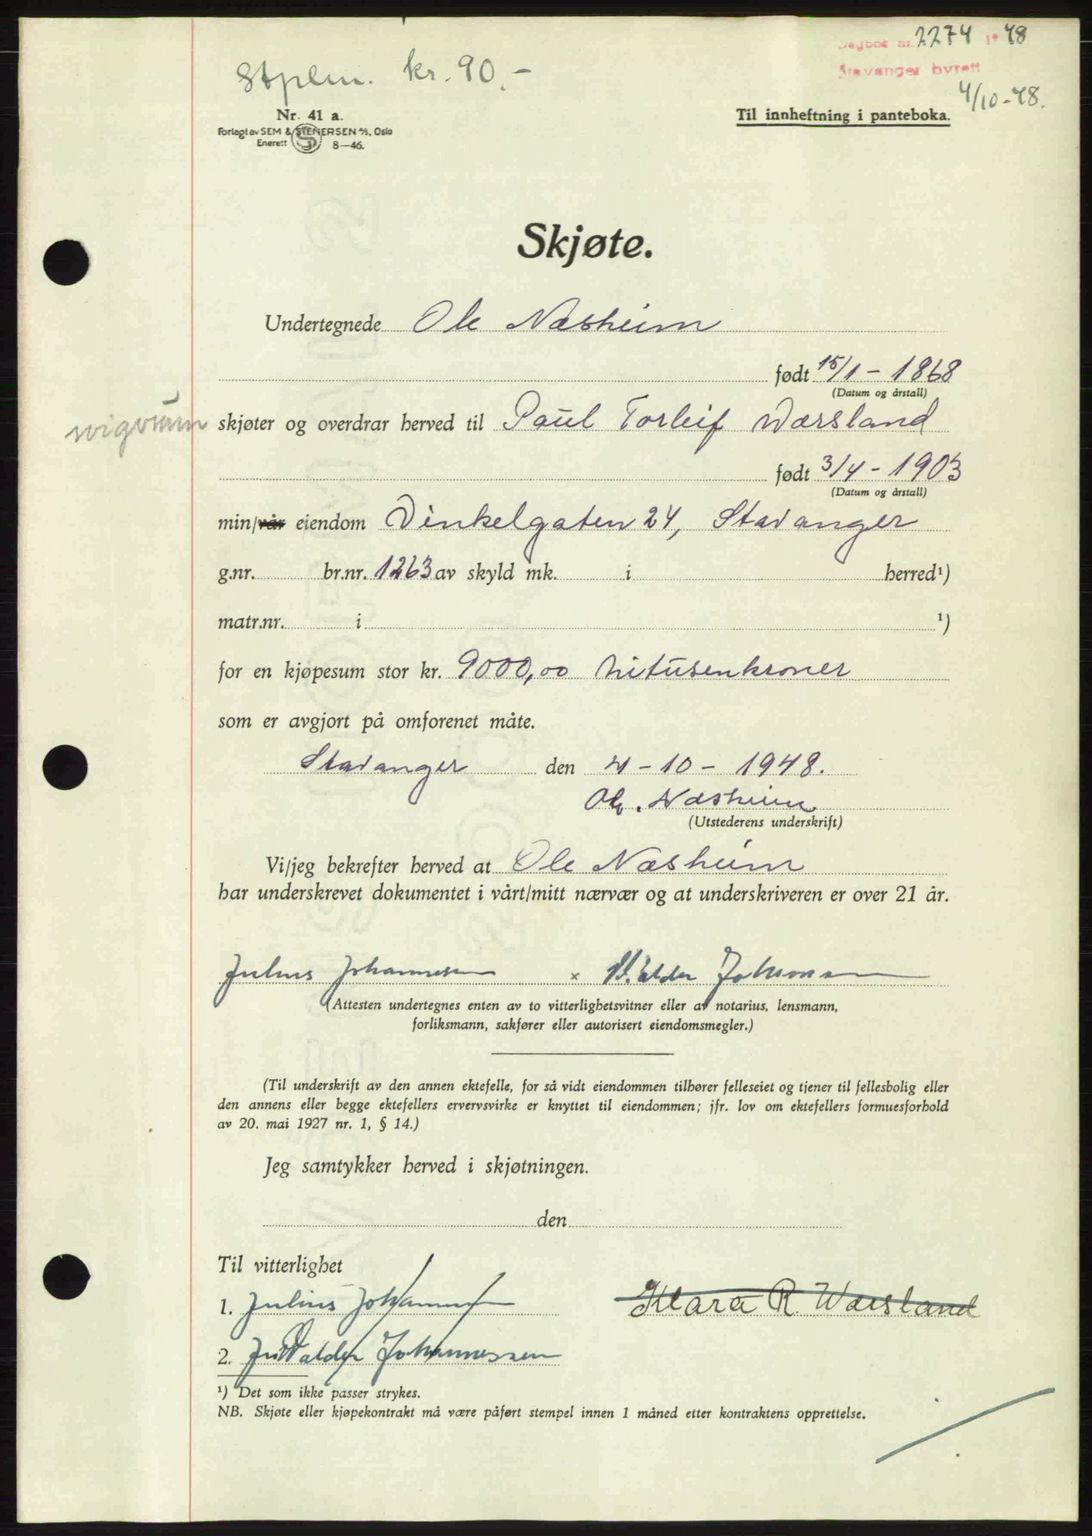 Dagbok nr. 2274 1948
Stavanger byrett
4/10-48.
Stplm. kr. 90.-
Nr. 41 a.
Forlagt av SEM & STENERSEN A/S, Oslo
Enerett S 8-46.
Til innheftning i panteboka.
Skjøte.
Undertegnede Ole Næsheim
født 15/1 - 1868
(Datum og årstall)
skjøter og overdrar herved til Paul Torleif Wærsland
født 3/4 - 1903
(Datum og årstall)
min/vår eiendom Vinkelgaten 24, Stavanger
g.nr. br.nr. 1263 av skyld mk. i herred¹)
matr.nr. i ¹)
for en kjøpesum stor kr. 9000,00 nitusenkroner
som er avgjort på omforenet måte.
Stavanger den 4 - 10 - 1948.
Ole Næsheim
(Utstederens underskrift)
Vi/jeg bekrefter herved at Ole Næsheim
har underskrevet dokumentet i vårt/mitt nærvær og at underskriveren er over 21 år.
Julius Johannesen × Valder Johansen
(Attesten undertegnes enten av to vitterlighetsvitner eller av notarius, lensmann,
forliksmann, sakfører eller autorisert eiendomsmegler.)
(Til underskrift av den annen ektefelle, for så vidt eiendommen tilhører felleseiet og tjener til fellesbolig eller
den annens eller begge ektefellers ervervsvirke er knyttet til eiendommen; jfr. lov om ektefellers formuesforhold
av 20. mai 1927 nr. 1, § 14.)
Jeg samtykker herved i skjøtningen.
den
Til vitterlighet
1. Julius Johannesen
Klara R. Wærsland
2. Valder Johannessen
¹) Det som ikke passer strykes.
NB. Skjøte eller kjøpekontrakt må være påført stempel innen 1 måned etter kontraktens opprettelse.